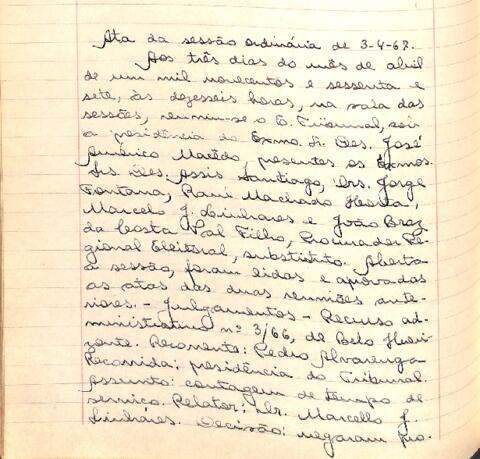 Ata da sessão ordinária de 3-4-67.
Aos três dias do mês de abril
de um mil novecentos e sessenta e
sete, às dezesseis horas, na sala das
sessões, reuniu-se o E. Tribunal, sob
a presidência do Exmo. Sr. Des. José
Américo Macêdo, presentes os Exmos.
Srs. Des. Assis Santiago, Drs. Jorge
Fontana, Raul Machado Horta,
Marcelo J. Linhares e João Braz
da Costa Val Filho, Procurador Re-
gional Eleitoral, substituto. Aberta
a sessão, foram lidas e aprovadas
as atas das duas reuniões ante-
riores. - Julgamentos - Recurso ad-
ministrativo nº 3/66, de Belo Hori-
zonte. Recorrente: Pedro Alvarenga
Recorrida: presidência do Tribunal.
Assunto: contagem de tempo de
serviço. Relator: Dr. Marcello J.
Linhares. Decisão: negaram pro-